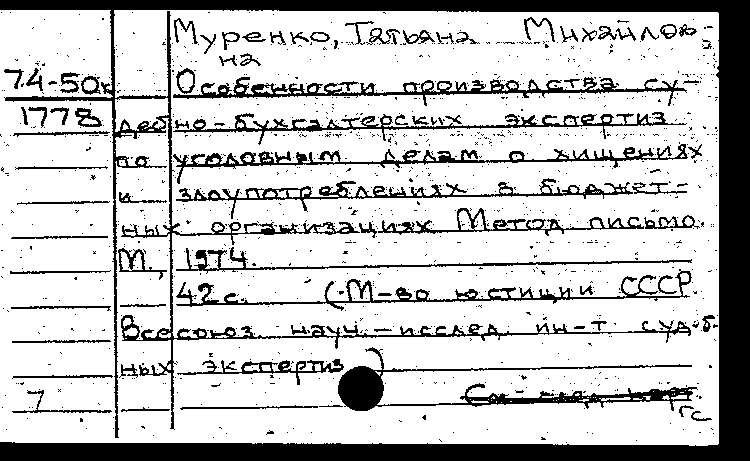 Муренко, Татьяна Михайлов-
на
74-50к Особенности производства су-
1778 дебно-бухгалтерских экспертиз
по уголовным делам о хищениях
и злоупотреблениях в бюджет-
ных организациях Метод письмо.
М., 1974.
42 с. (М-во юстиции СССР
Всесоюз. науч.-исслед. ин-т судеб-
ных экспертиз)
7
гс